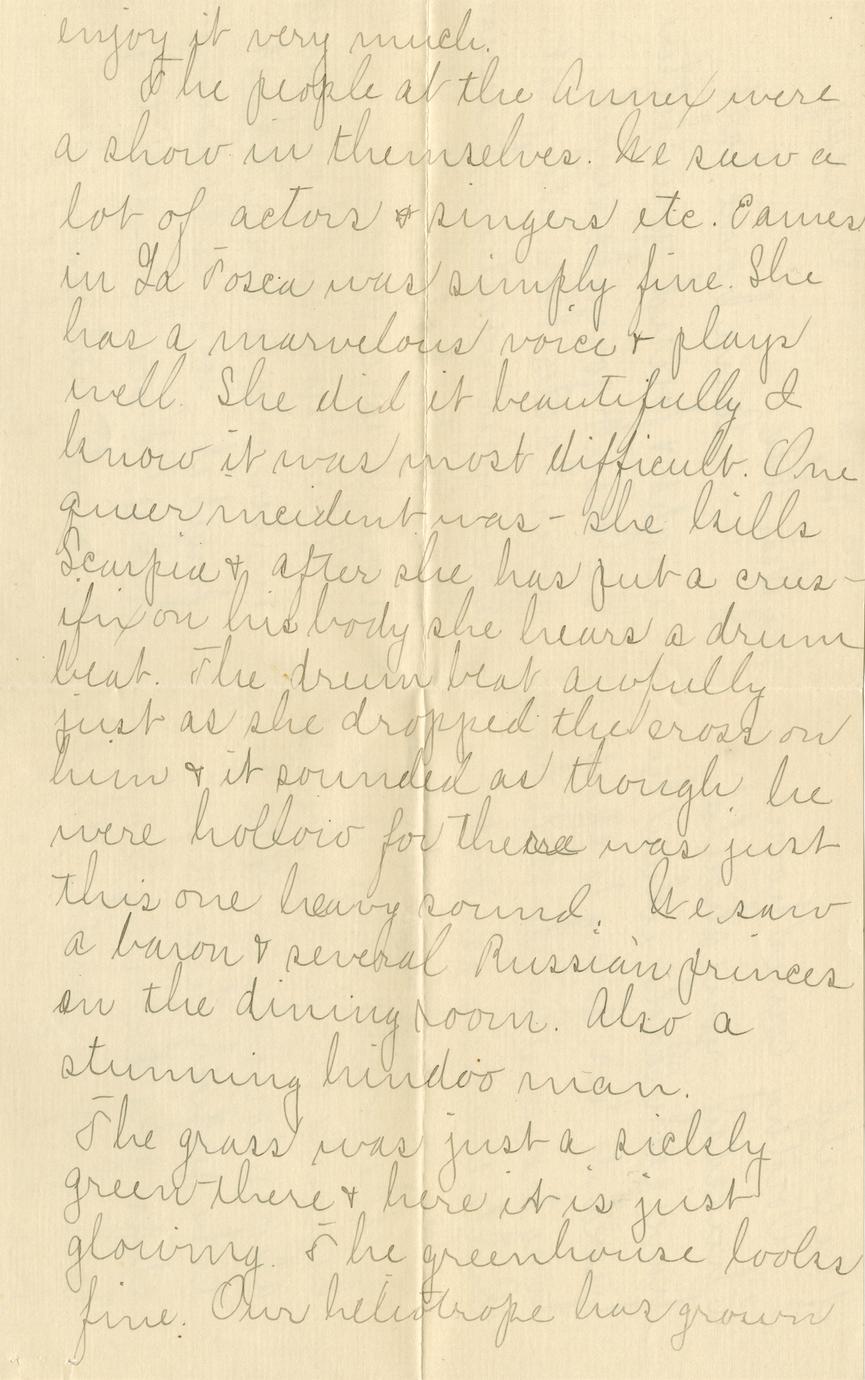 enjoy it very much.
The people at the Annex were
a show in themselves. We saw a
lot of actors & singers etc. Eames
in La Tosca was simply fine. She
has a marvelous voice & plays
well. She did it beautifully I
know it was most difficult. One
queer incident was - she kills
Scarpia & after she has put a cruc-
ifix on his body she hears a drum
beat. The drum beat awfully
just as she dropped the cross on
him & it sounded as though he
were hollow for there was just
this one heavy sound. We saw
a baron & several Russian princes
in the dining room. Also a
stunning hindoo man.
The grass was just a sickly
green there & here it is just
glowing. The greenhouse looks
fine. Our heliotrope has grown